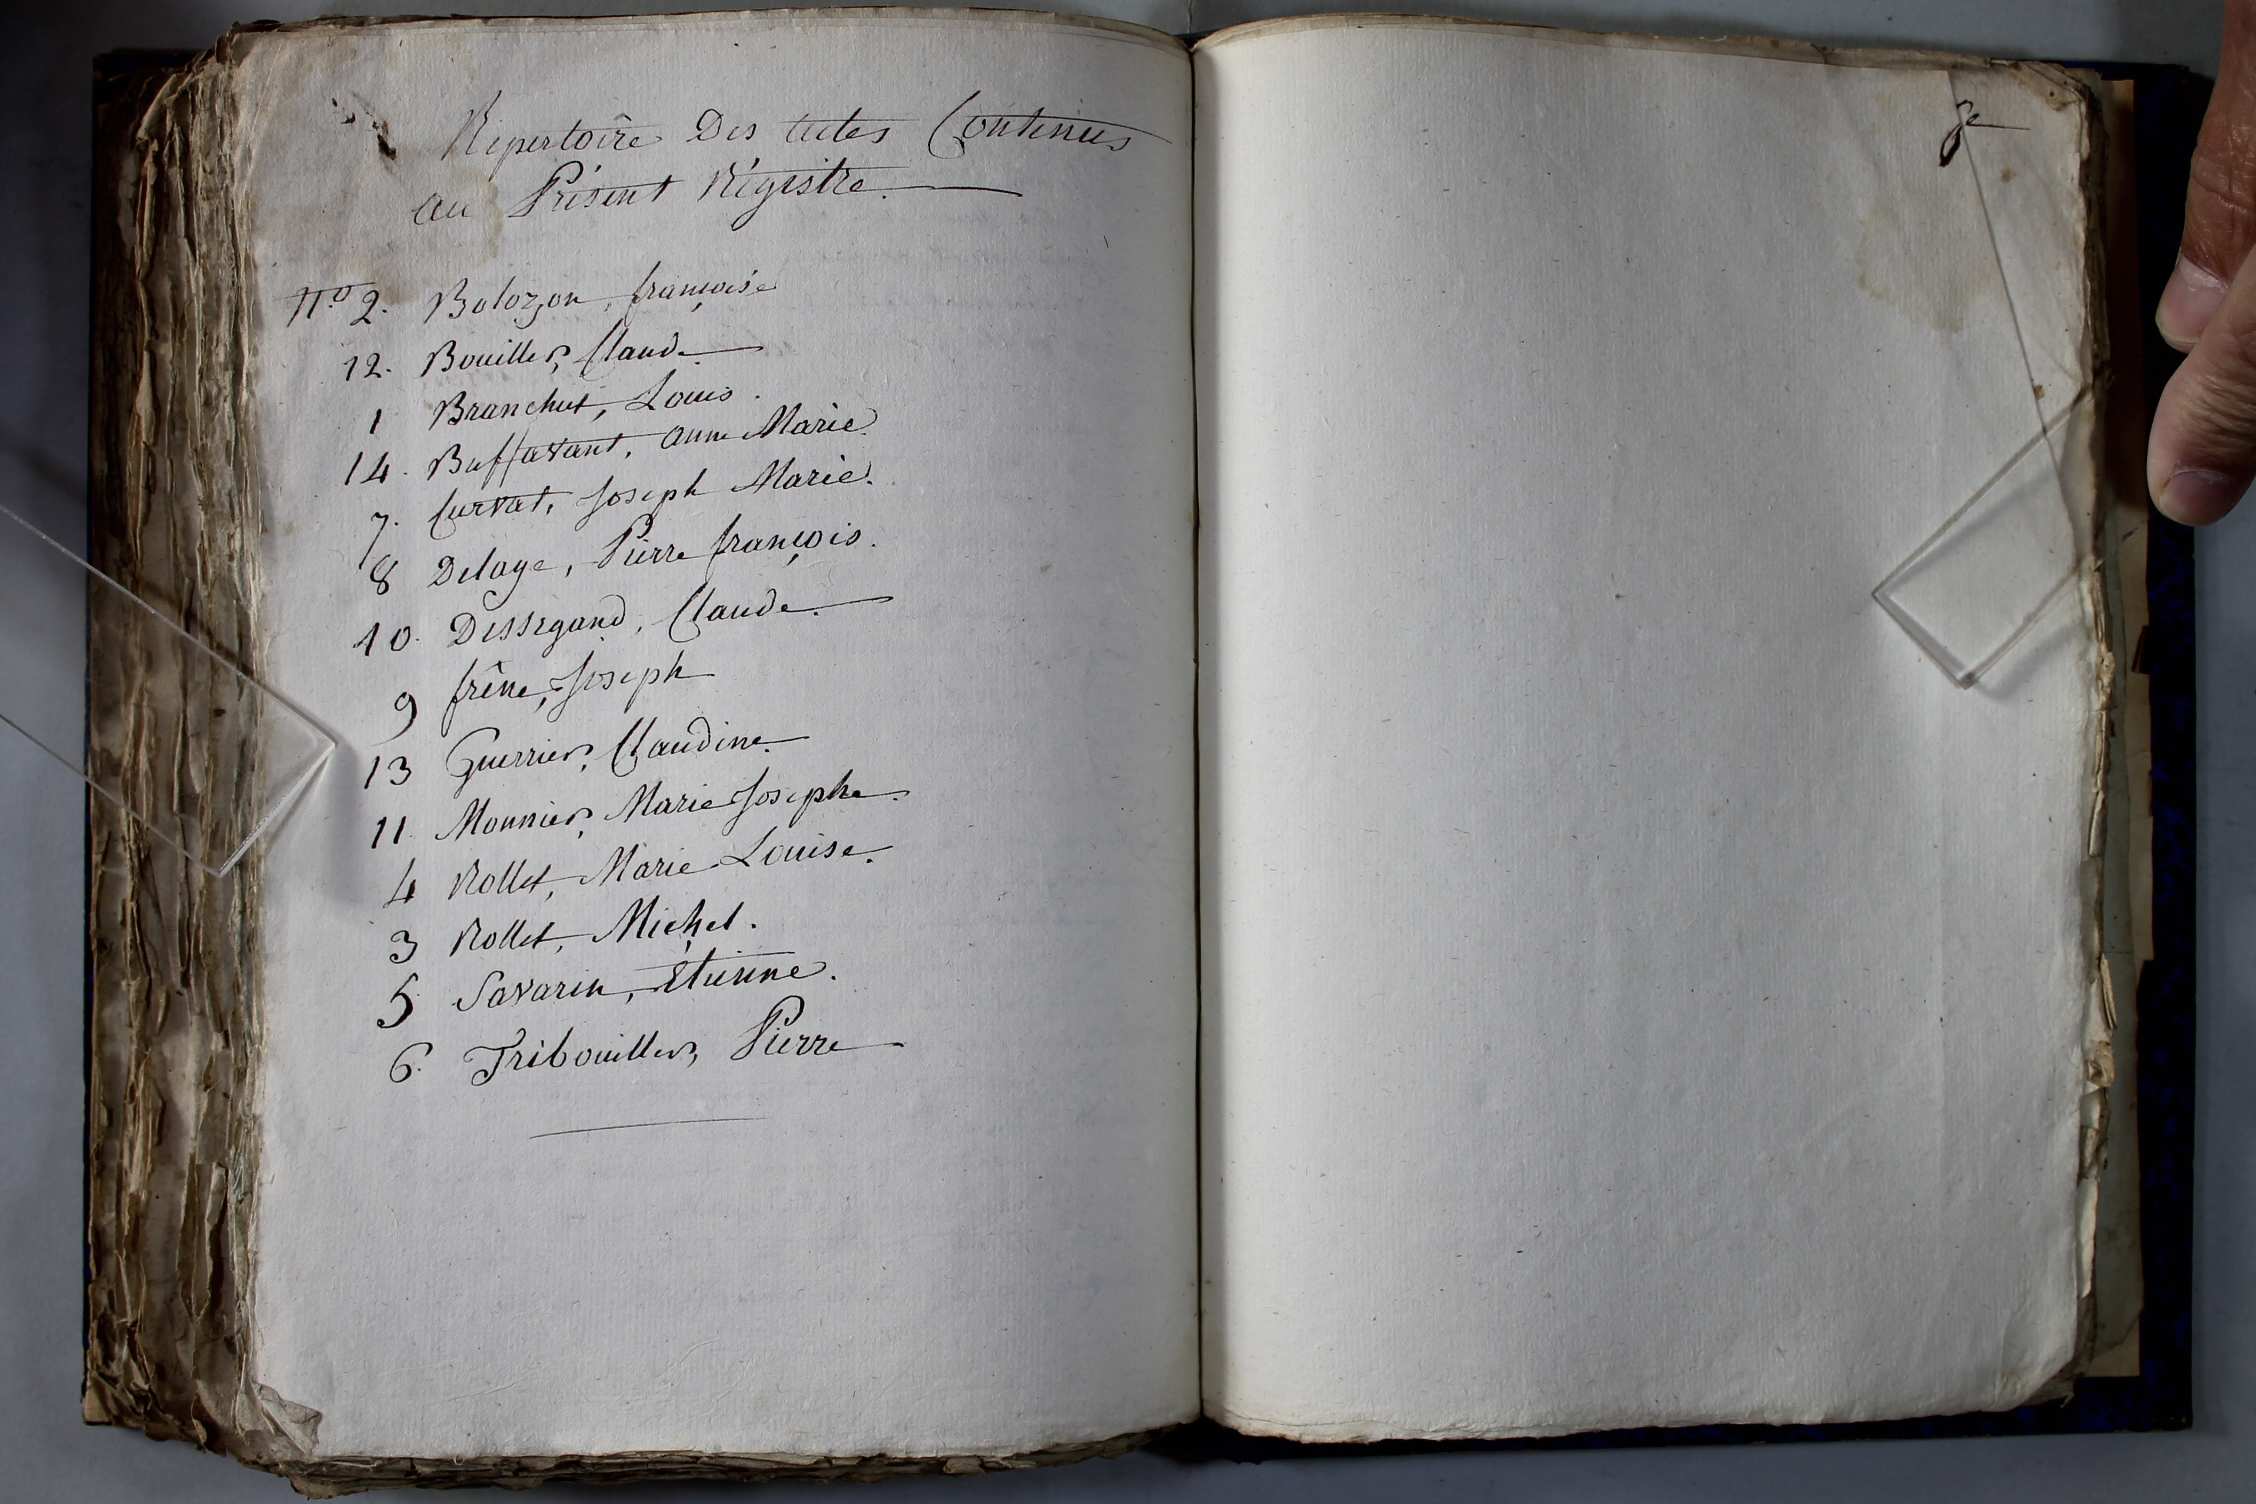 Répertoire Des actes Contenus
au Présent Régistre.
N.º 2. Bolozon, françoise
12. Bouiller, Claude
1 Branchut, Louis.
14. Buffavant, anne Marie.
7. Curvat, Joseph Marie.
8 Delaye, Pierre françois.
10. Dessegand, Claude.
9 frêne, Joseph
13 Guerrier, Claudine.
11. Monnier, Marie Josephe.
4 Rollet, Marie Louise.
3 Rollet, Michel.
5 Savarin, Etienne.
6. Tribouiller, Pierre